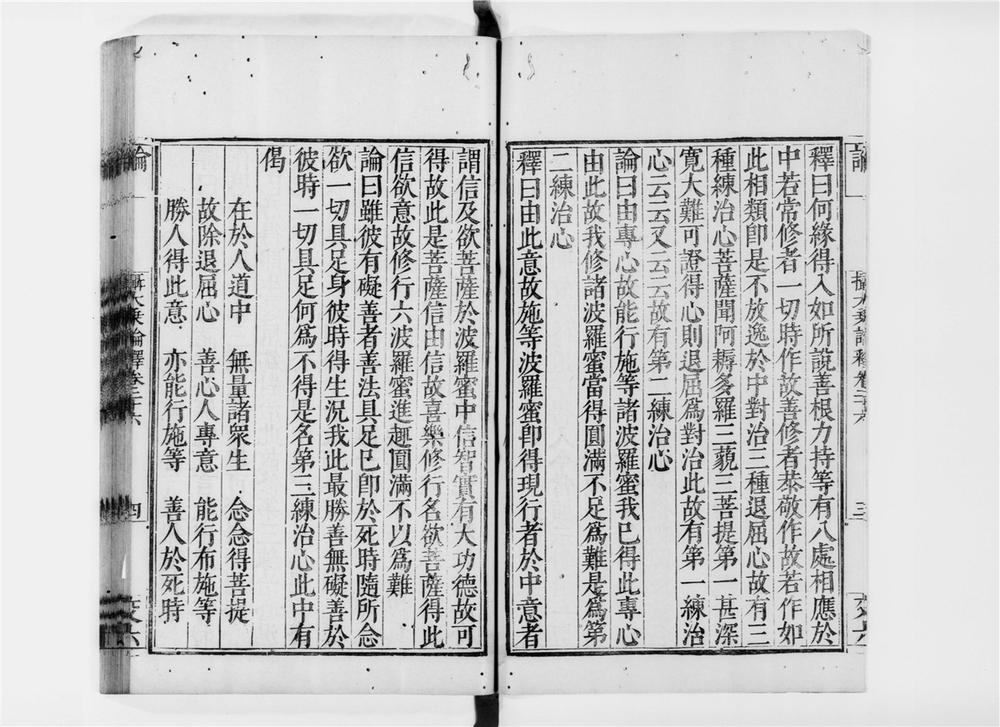 釋曰何緣得入如所說善根力持等有八處相應於
中若常修者一切時作故善修者恭敬作故若作如
此相類卽是不放逸於中對治三種退屈心故有三
種練治心菩薩聞阿耨多羅三藐三菩提第一甚深
寬大難可證得心則退屈爲對治此故有第一練治
心云云又云云故有第二練治心
論曰由專心故能行施等諸波羅蜜我已得此專心
由此故我修諸波羅蜜當得圓滿不足爲難是爲第
二練治心
釋曰由此意故施等波羅蜜卽得現行者於中意者
謂信及欲菩薩於波羅蜜中信智實有大功德故可
得故此是菩薩信由信故喜樂修行名欲菩薩得此
信欲意故修行六波羅蜜進趣圓滿不以爲難
論曰雖彼有礙善者善法具足已卽於死時隨所念
欲一切具足身彼時得生況我此最勝善無礙善於
彼時一切具足何爲不得是名第三練治心此中有
偈
在於人道中　無量諸衆生　念念得菩提
故除退屈心　善心人專意　能行布施等
勝人得此意　亦能行施等　善人於死時
論　攝大乘論釋卷六　四
論　攝大乘論釋卷六　三